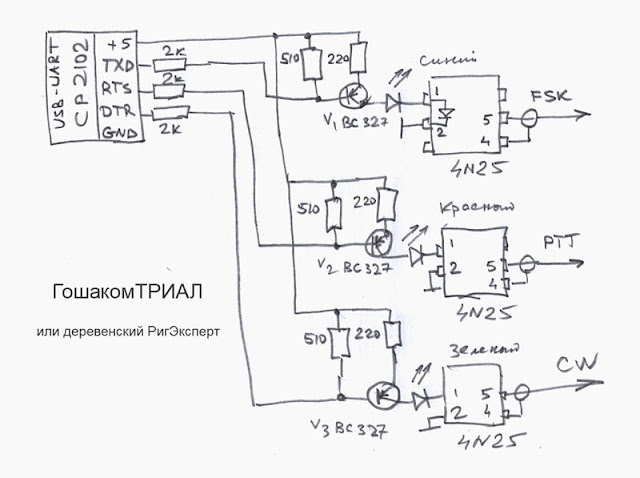 USB-UART
CP2102
+5
TXD
RTS
DTR
GND
2k
2k
2k
510
220
Синий
V1 BC327
1
2
5
4
4N25
FSK
510
220
Красный
V2 BC327
1
2
5
4
4N25
PTT
ГошакомТРИАЛ
или деревенский РигЭксперт
510
220
Зеленый
V3 BC327
1
2
5
4
4N25
CW